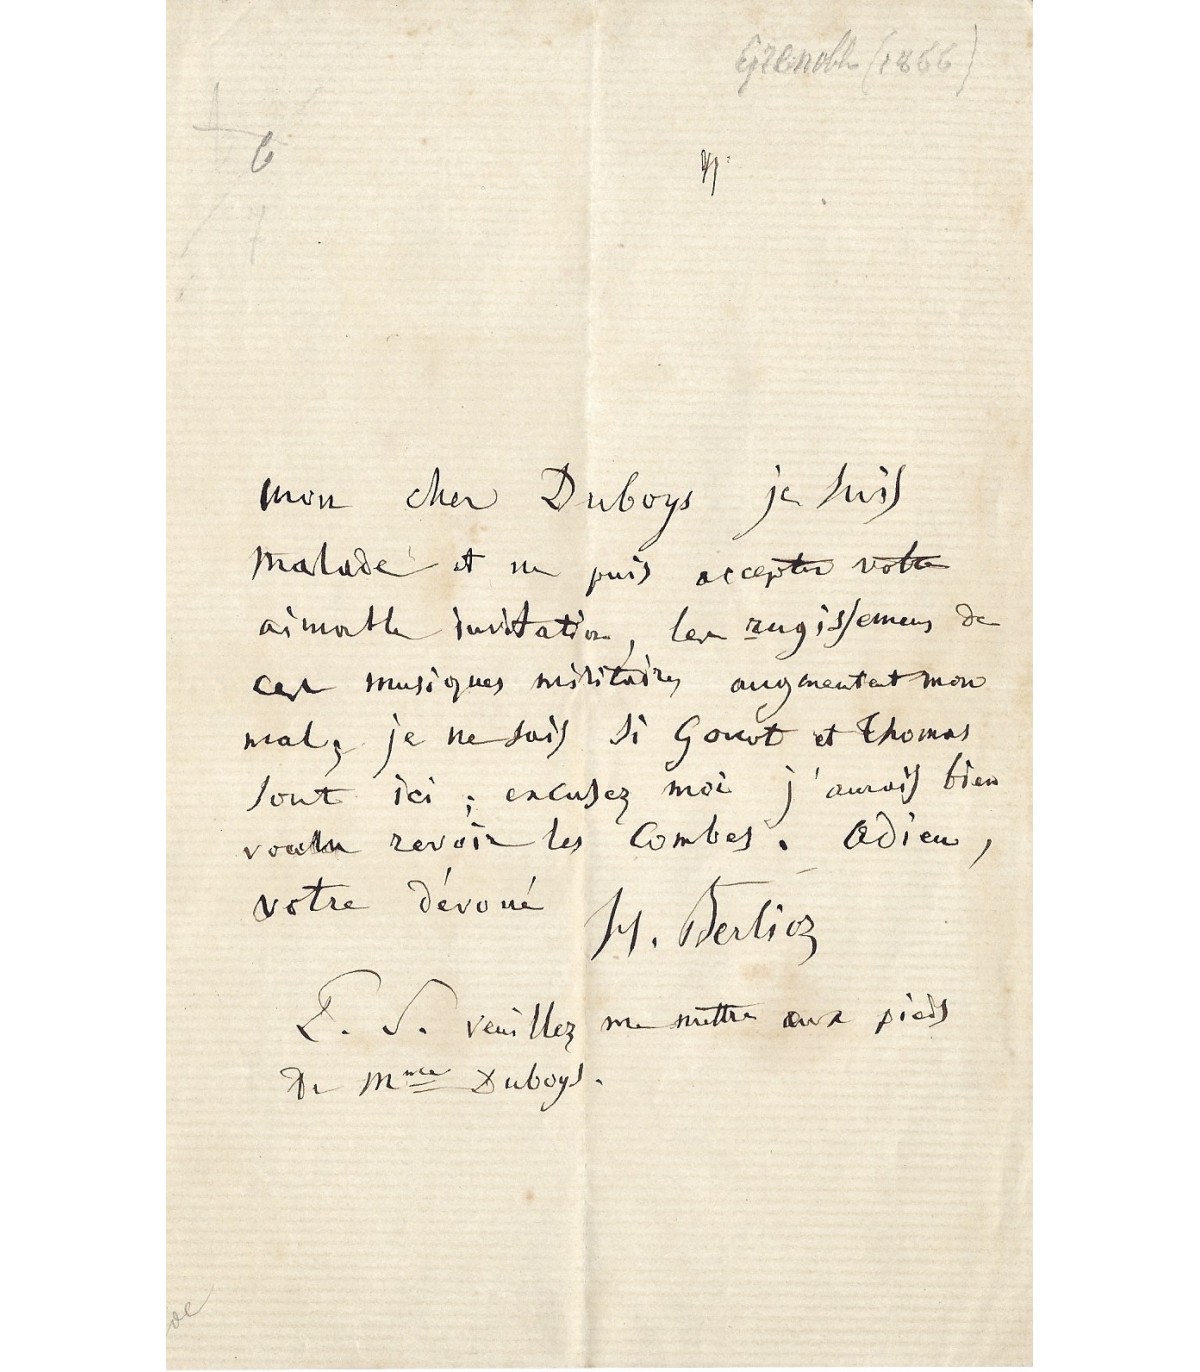 Grenoble (1866)
6
7
mon cher Duboys je suis
malade et ne puis accepter votre
aimable invitation, les rugissemens de
ces musiques militaires augmentent mon
mal, je ne sais si Gounot et Thomas
sont ici ; excusez moi j'aurais bien
voulu revoir les Combes. Adieu,
votre dévoué
H. Berlioz
P. S. veuillez me mettre aux pieds
de Mme Duboys.